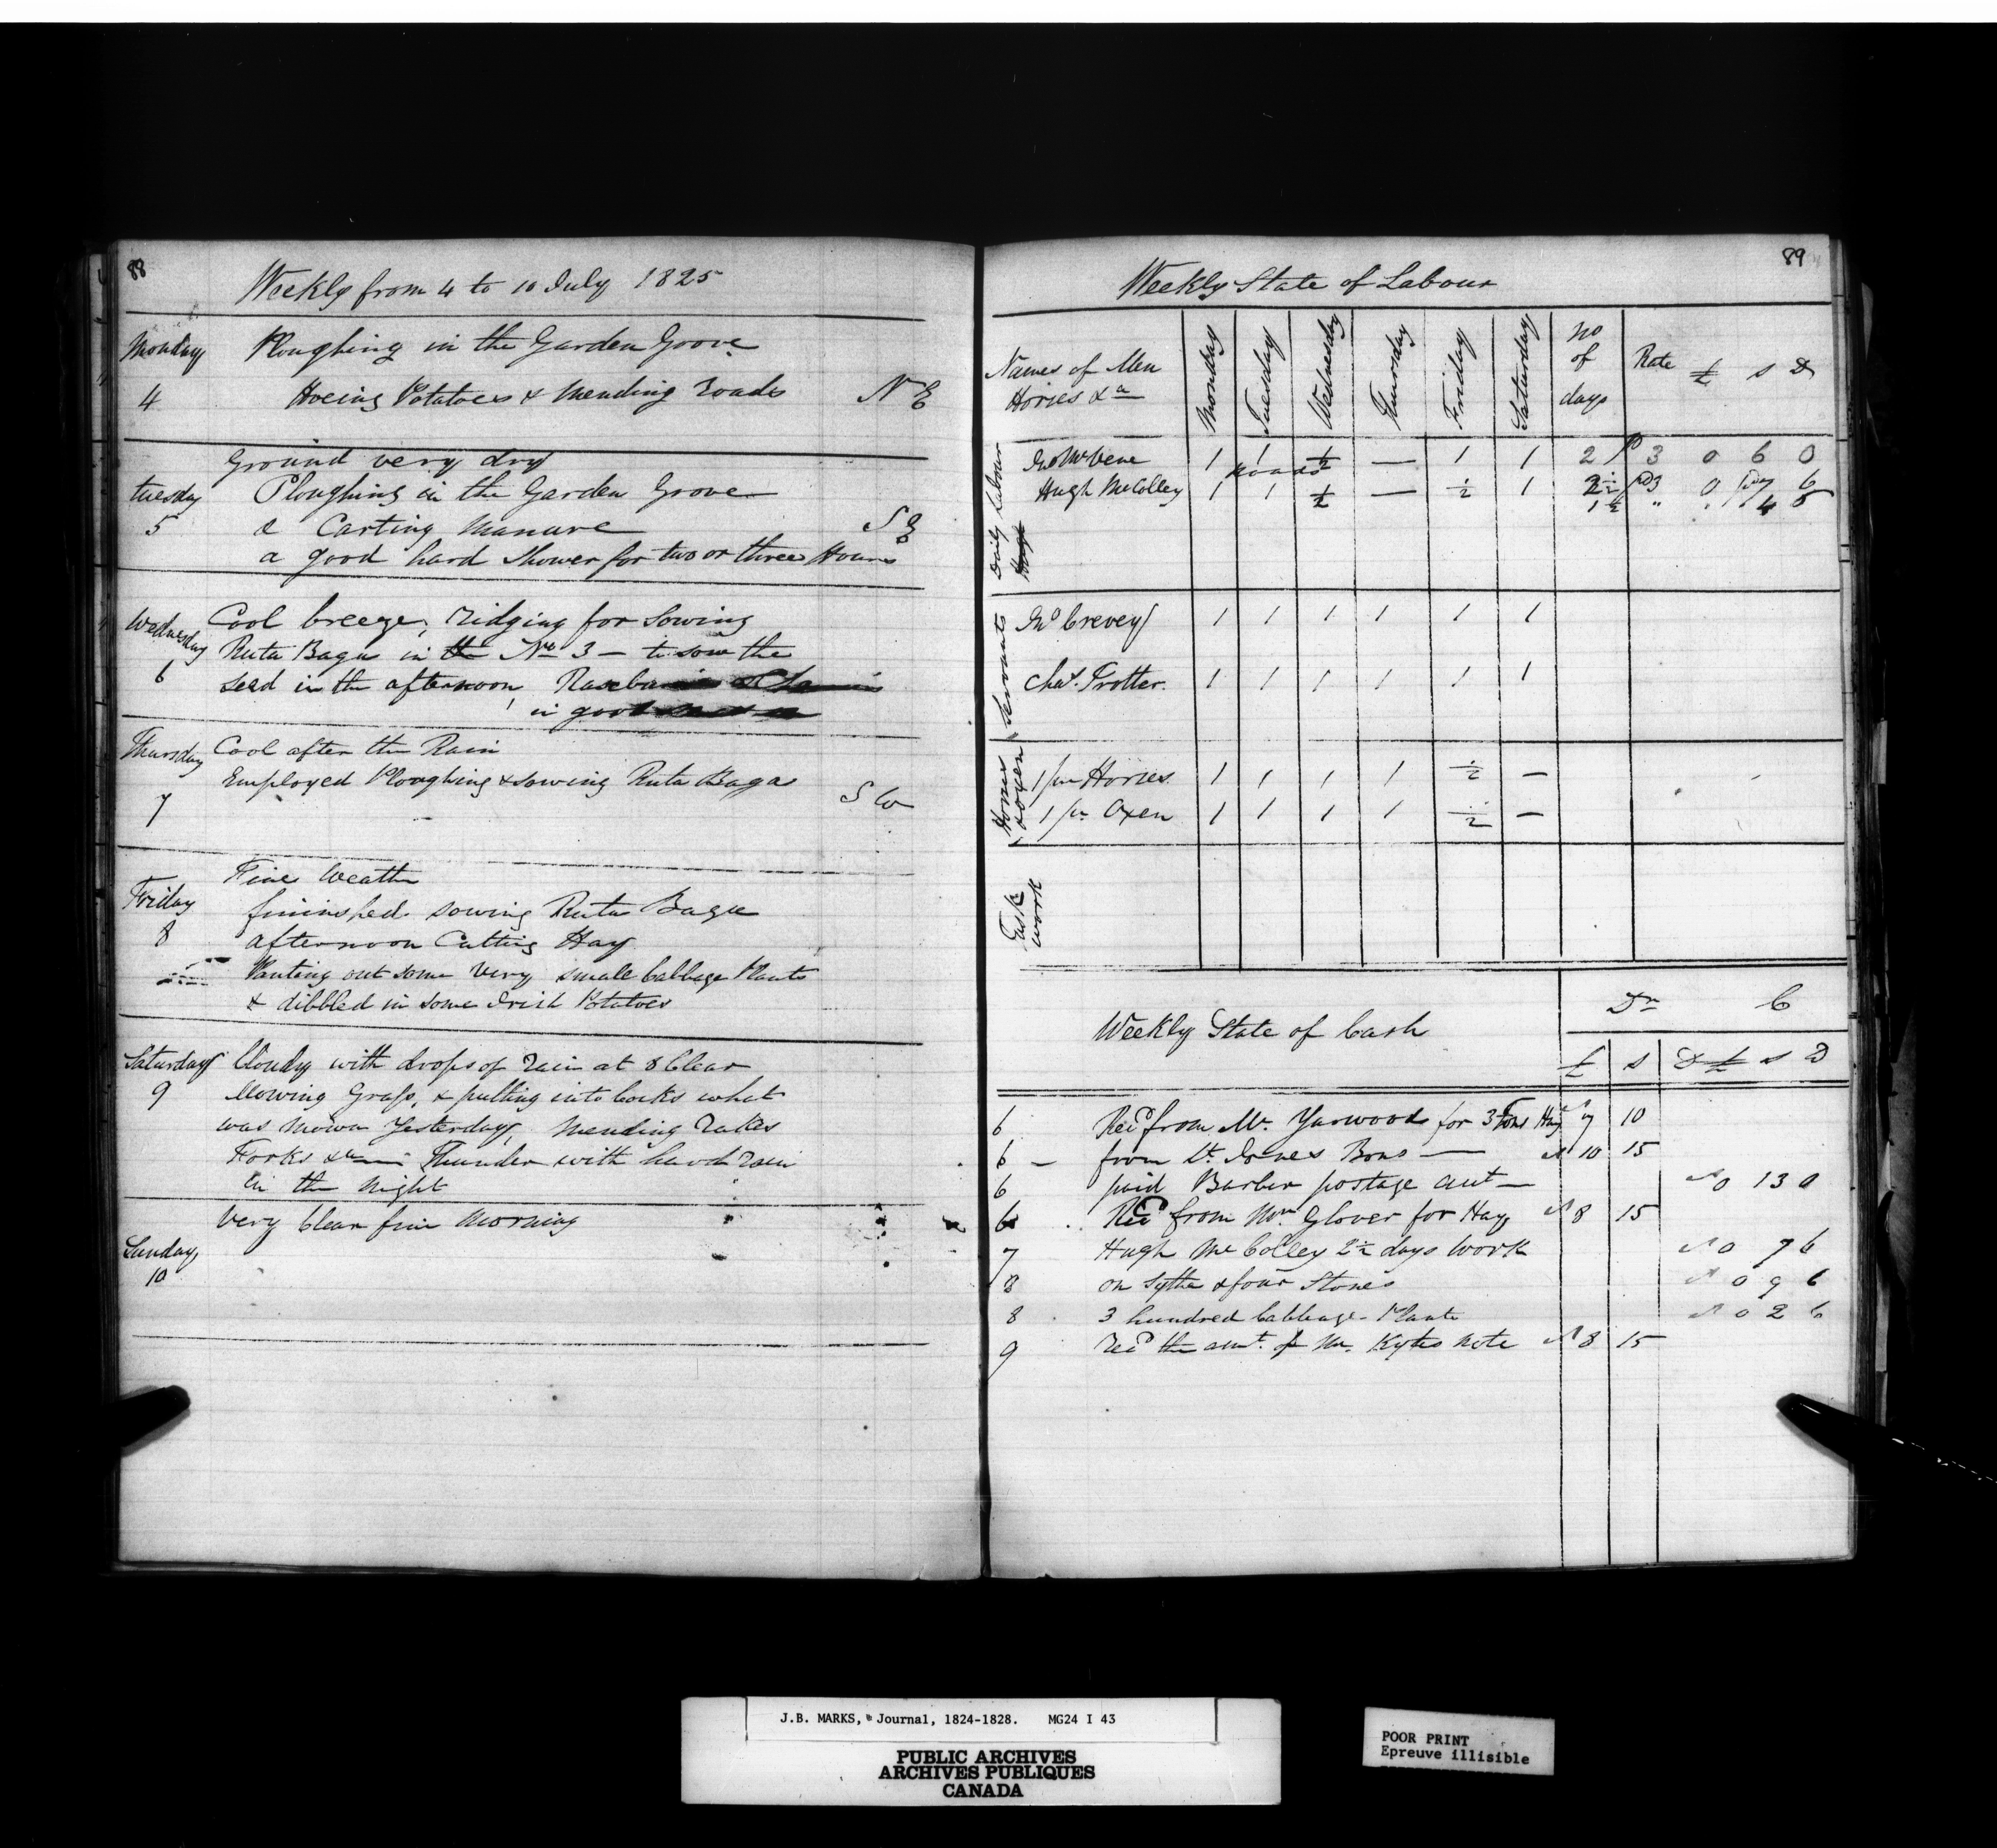 88
Weekly from 4 to 10 July 1825
Monday Ploughing in the Garden Goove
4 Hoeing Potatoes & Mending Roads N E
Ground very dry
Tuesday Ploughing in the Garden Grove
5 & Carting Manure S E
a good hard Shower for two or three Hours
Wednesday Cool breeze, ridging for Sowing
6 Ruta Baga in the No 3 — to sow the
seed in the afternoon,
in good
Thursday Cool after the Rain
7 Employed Ploughing & sowing Ruta Baga S W
Fine Weath
Friday fininshed sowing Ruta Baga
8 afternoon Cutting Hay
Planting out some very small Cabbage Plants
& dibbled in some Irish Potatoes
Saturday Cloudy with drops of rain at 8 Clear
9 Mowing Grass, & putting into Cocks what
was Mown Yesterday, Mending Rakes
Forks &a Thunder with hard rain
in the Night
Very Clear fine Morning
Sunday
10
89
Weekly State of Labour
Names of Men Horses &a Monday Tuesday Wednesday Thursday Friday Saturday No of days Rate £ S D
Daily Labour
1 1 ½ — 1 1 2 3 0 6 0
Roads
Hugh McColley 1 1 ½ — ½ 1 2½ 3 0 7 6
1½ " " 4 6
Servants
Jno Crevey 1 1 1 1 1 1
Chas. Trotter. 1 1 1 1 1 1
Horses & Oxen
1 pr Horses 1 1 1 1 ½ —
1 pr Oxen 1 1 1 1 ½ —
Task Work
Weekly State of Cash Dr C
£ S D £ S D
6 Recd from Mr. Yarwood for 3 Tons Hay 7 10
6 — from Lt. Jones Bons — 10 15
6 paid Barber postage aut — 0 13 0
6 Recd from Mrs. Glover for Hay 8 15
7 Hugh McColley 2½ days Work 0 7 6
8 on Sythe & four Stones 0 9 6
8 3 hundred Cabbage Plants 0 2 6
9 recd the amt. of Mr. Kytes Note 8 15
J.B. MARKS, Journal, 1824-1828. MG24 I 43
PUBLIC ARCHIVES
ARCHIVES PUBLIQUES
CANADA
POOR PRINT
Epreuve illisible